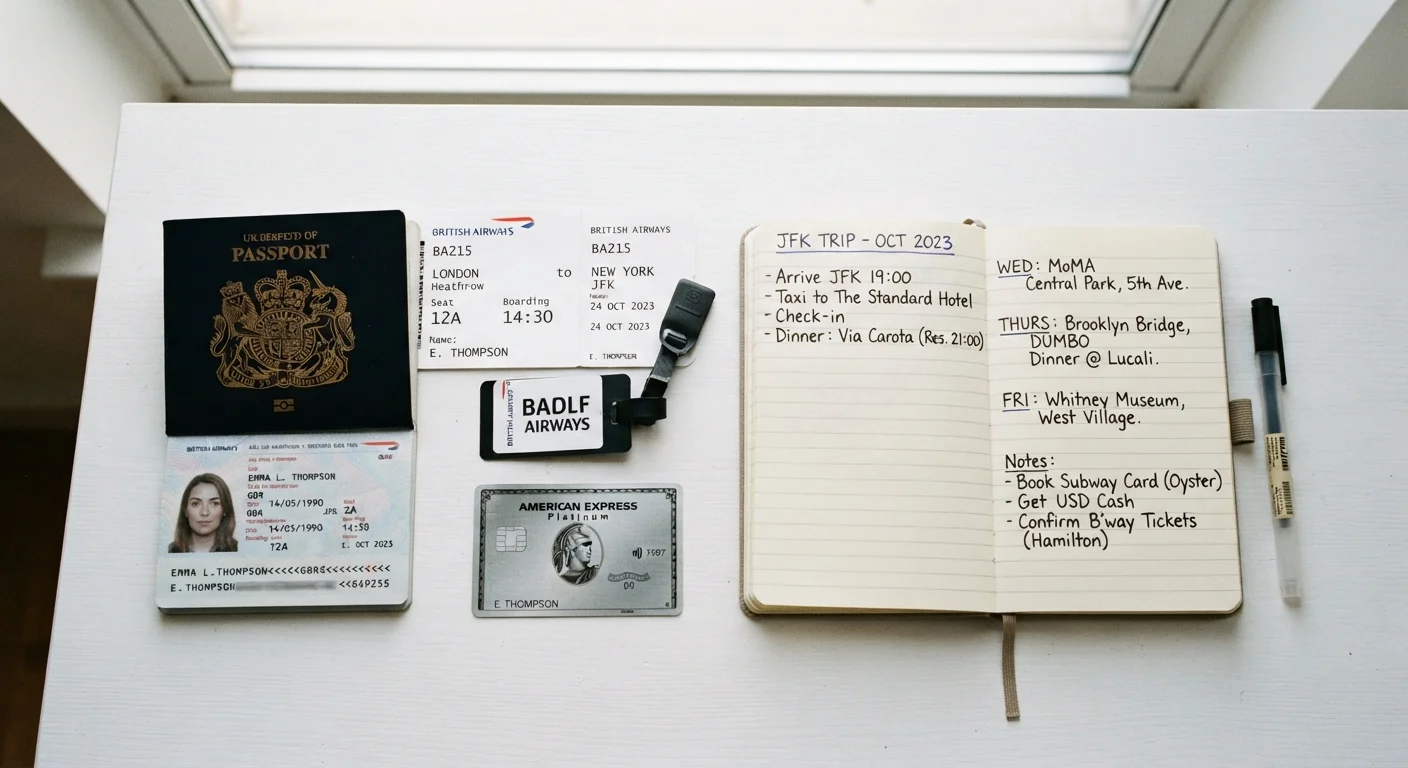 PASSPORT
BRITISH AIRWAYS
BA215
LONDON to
Heathrow
Seat Boarding
12A 14:30
Name:
E. THOMPSON
BRITISH AIRWAYS
BA215
NEW YORK
JFK
24 OCT 2023
24 OCT 2023
BADLF
AIRWAYS
EMMA L. THORPSON
14/05/1990
2A
12A
EMMA L.THORPSON<<<<<G8RS<<<<<<<<<<
<<649255
AMERICAN EXPRESS
Platinum
E THOMPSON
JFK TRIP - OCT 2023
- Arrive JFK 19:00
- Taxi to The Standard Hotel
- Check-in
- Dinner: Via Carota (Res. 21:00)
WED: MoMA
Central Park, 5th Ave.
THURS: Brooklyn Bridge,
DUMBO
Dinner @ Lucali.
FRI: Whitney Museum,
West Village.
Notes:
- Book Subway Card (Oyster)
- Get USD Cash
- Confirm B'way Tickets
(Hamilton)